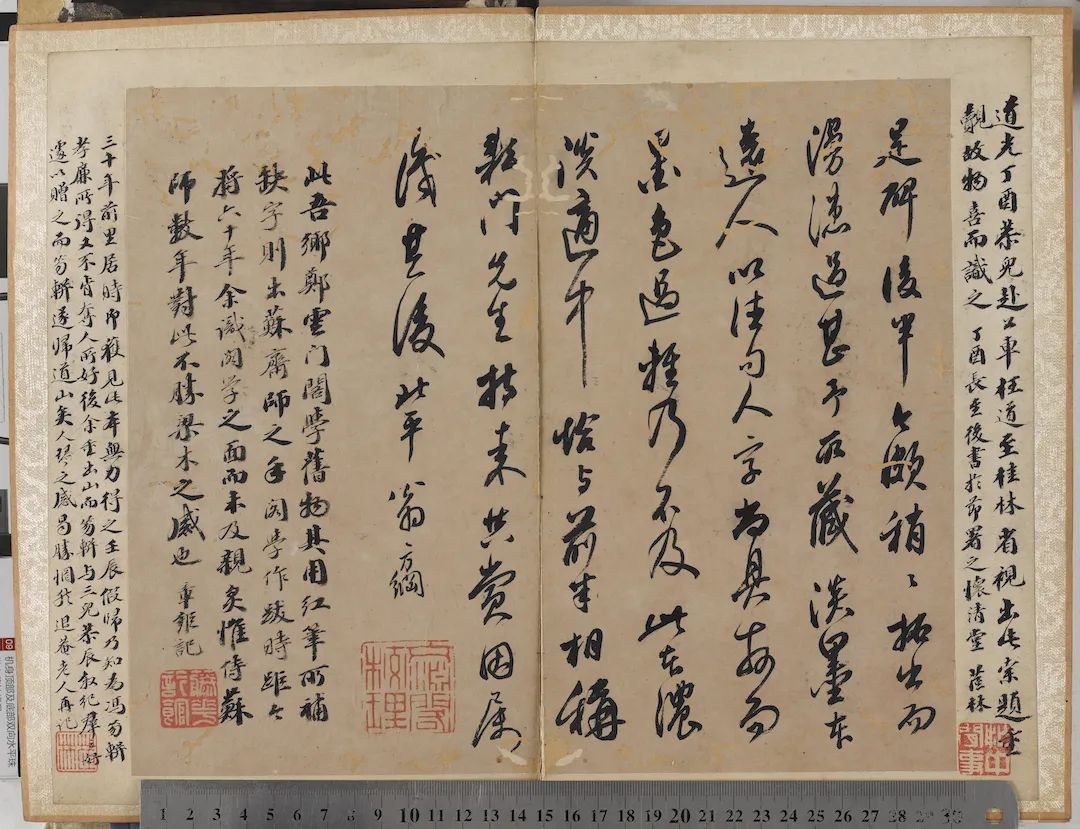 道光丁酉恭兒赴公車枉道至桂林省視出此索題重
覩故物喜而識之 丁酉長至後書於節署之懷清堂 茝林
是碑後半令頗稍稍拓出而
漫漶過甚予所藏淡墨本
遠人以佳句人字尚具
墨色過輕乃不及此在濃
淡適中恰与前半相稱
雲門先生持来共賞因属
識其後 北平翁方綱
此吾鄉鄭雲門閣學舊物其用紅筆所補
缺字則出蘇齋師之手閣學作跋時距今
將六十年余識閣学之面而未及親炙惟侍蘇
師數年對此不勝梁木之感也 章鉅記
三十年前里居時即獲見此本無力得之壬辰假歸乃知為馮笏軿
孝廉所得又不肯奪人所好後余重出山而笏軿与三兒恭辰
遂以贈之而笏軿遂歸道山矣人琴之感曷勝惘然退菴老人再記
09
机身顶部及底部双向水平珠
1 2 3 4 5 6 7 8 9 10 11 12 13 14 15 16 17 18 19 20 21 22 23 24 25 26 27 28 29 30